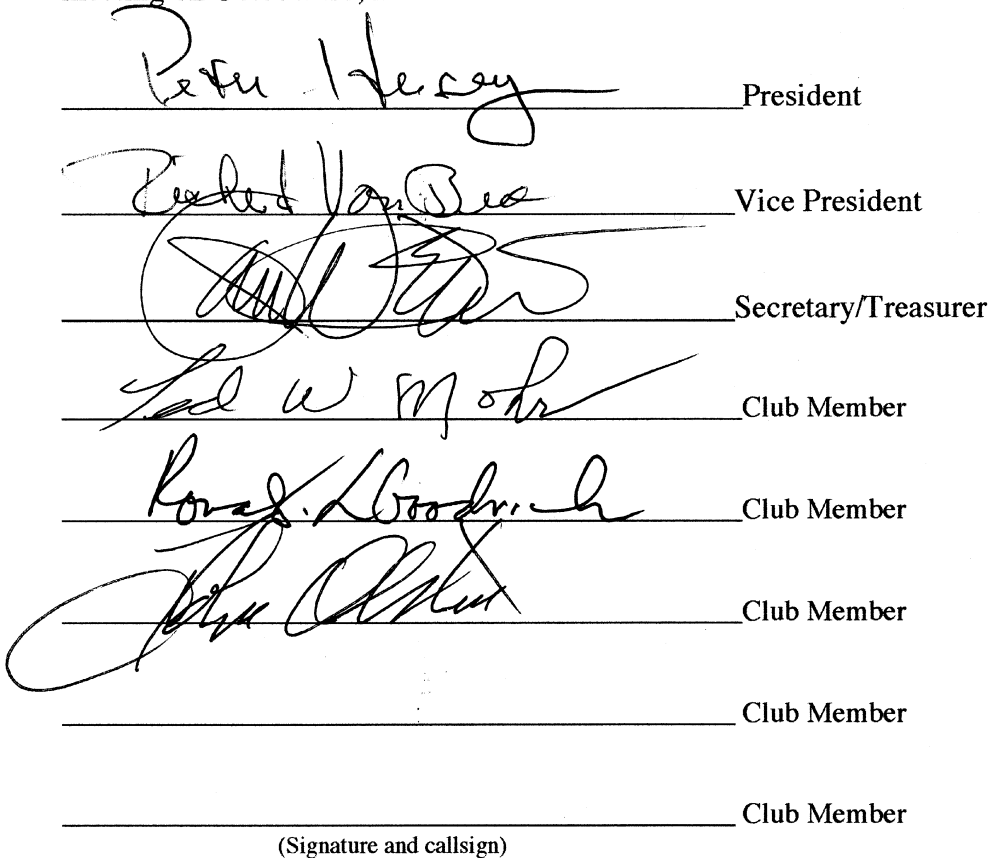 Peter Hersey President
Richard Van Vice President
Secretary/Treasurer
Ted W Mohr Club Member
Ronald L Goodrich Club Member
John Club Member
Club Member
Club Member
(Signature and callsign)